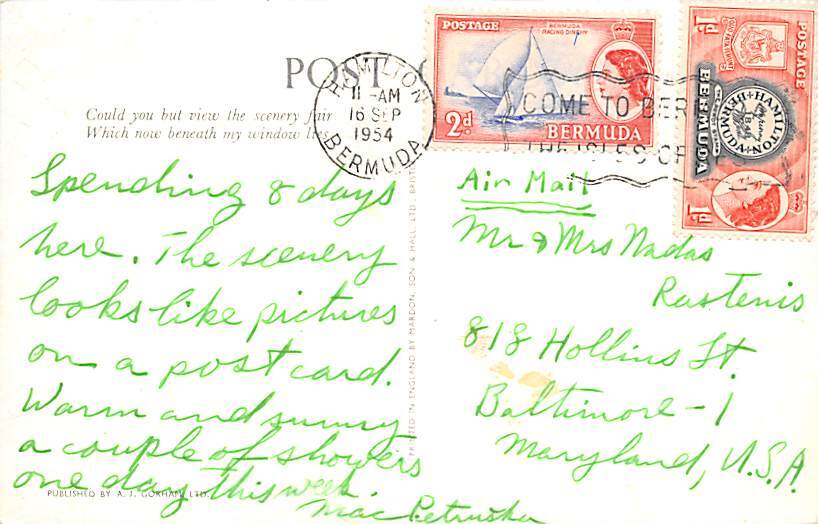 POST
Could you but view the scenery fair
Which now beneath my window lies
HAMILTON
11-AM
16 SEP
1954
BERMUDA
POSTAGE
BERMUDA
RACING DINGHY
2d.
BERMUDA
COME TO BER
THE ISLES OF
1d
POSTAGE
BERMUDA
HAMILTON
BERMUDA
1d
Spending 8 days
here. The scenery
looks like pictures
on a post card.
Warm and sunny
a couple of showers
one day this week.
Mac Petruska
PUBLISHED BY A. J. GORHAM, LTD.
PRINTED IN ENGLAND BY MARDON, SON & HALL, LTD., BRIST
Air Mail
Mr & Mrs Nadas
Rastenis
818 Hollins St.
Baltimore-1
Maryland, U.S.A.